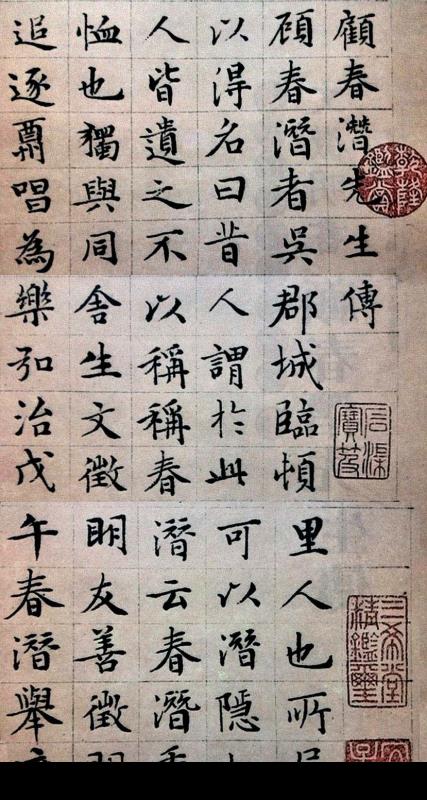 顧春潛先生傳
頋春潛者吳郡城臨頓里人也所
以得名曰昔人謂於此可以潛隱
人皆遺之不以稱稱春潛云春潛
恤也獨與同舍生文徵明友善徵明
追逐唱為樂弘治戊午春潛舉
乾隆鑑賞
石渠寶笈
三希堂精鑑璽